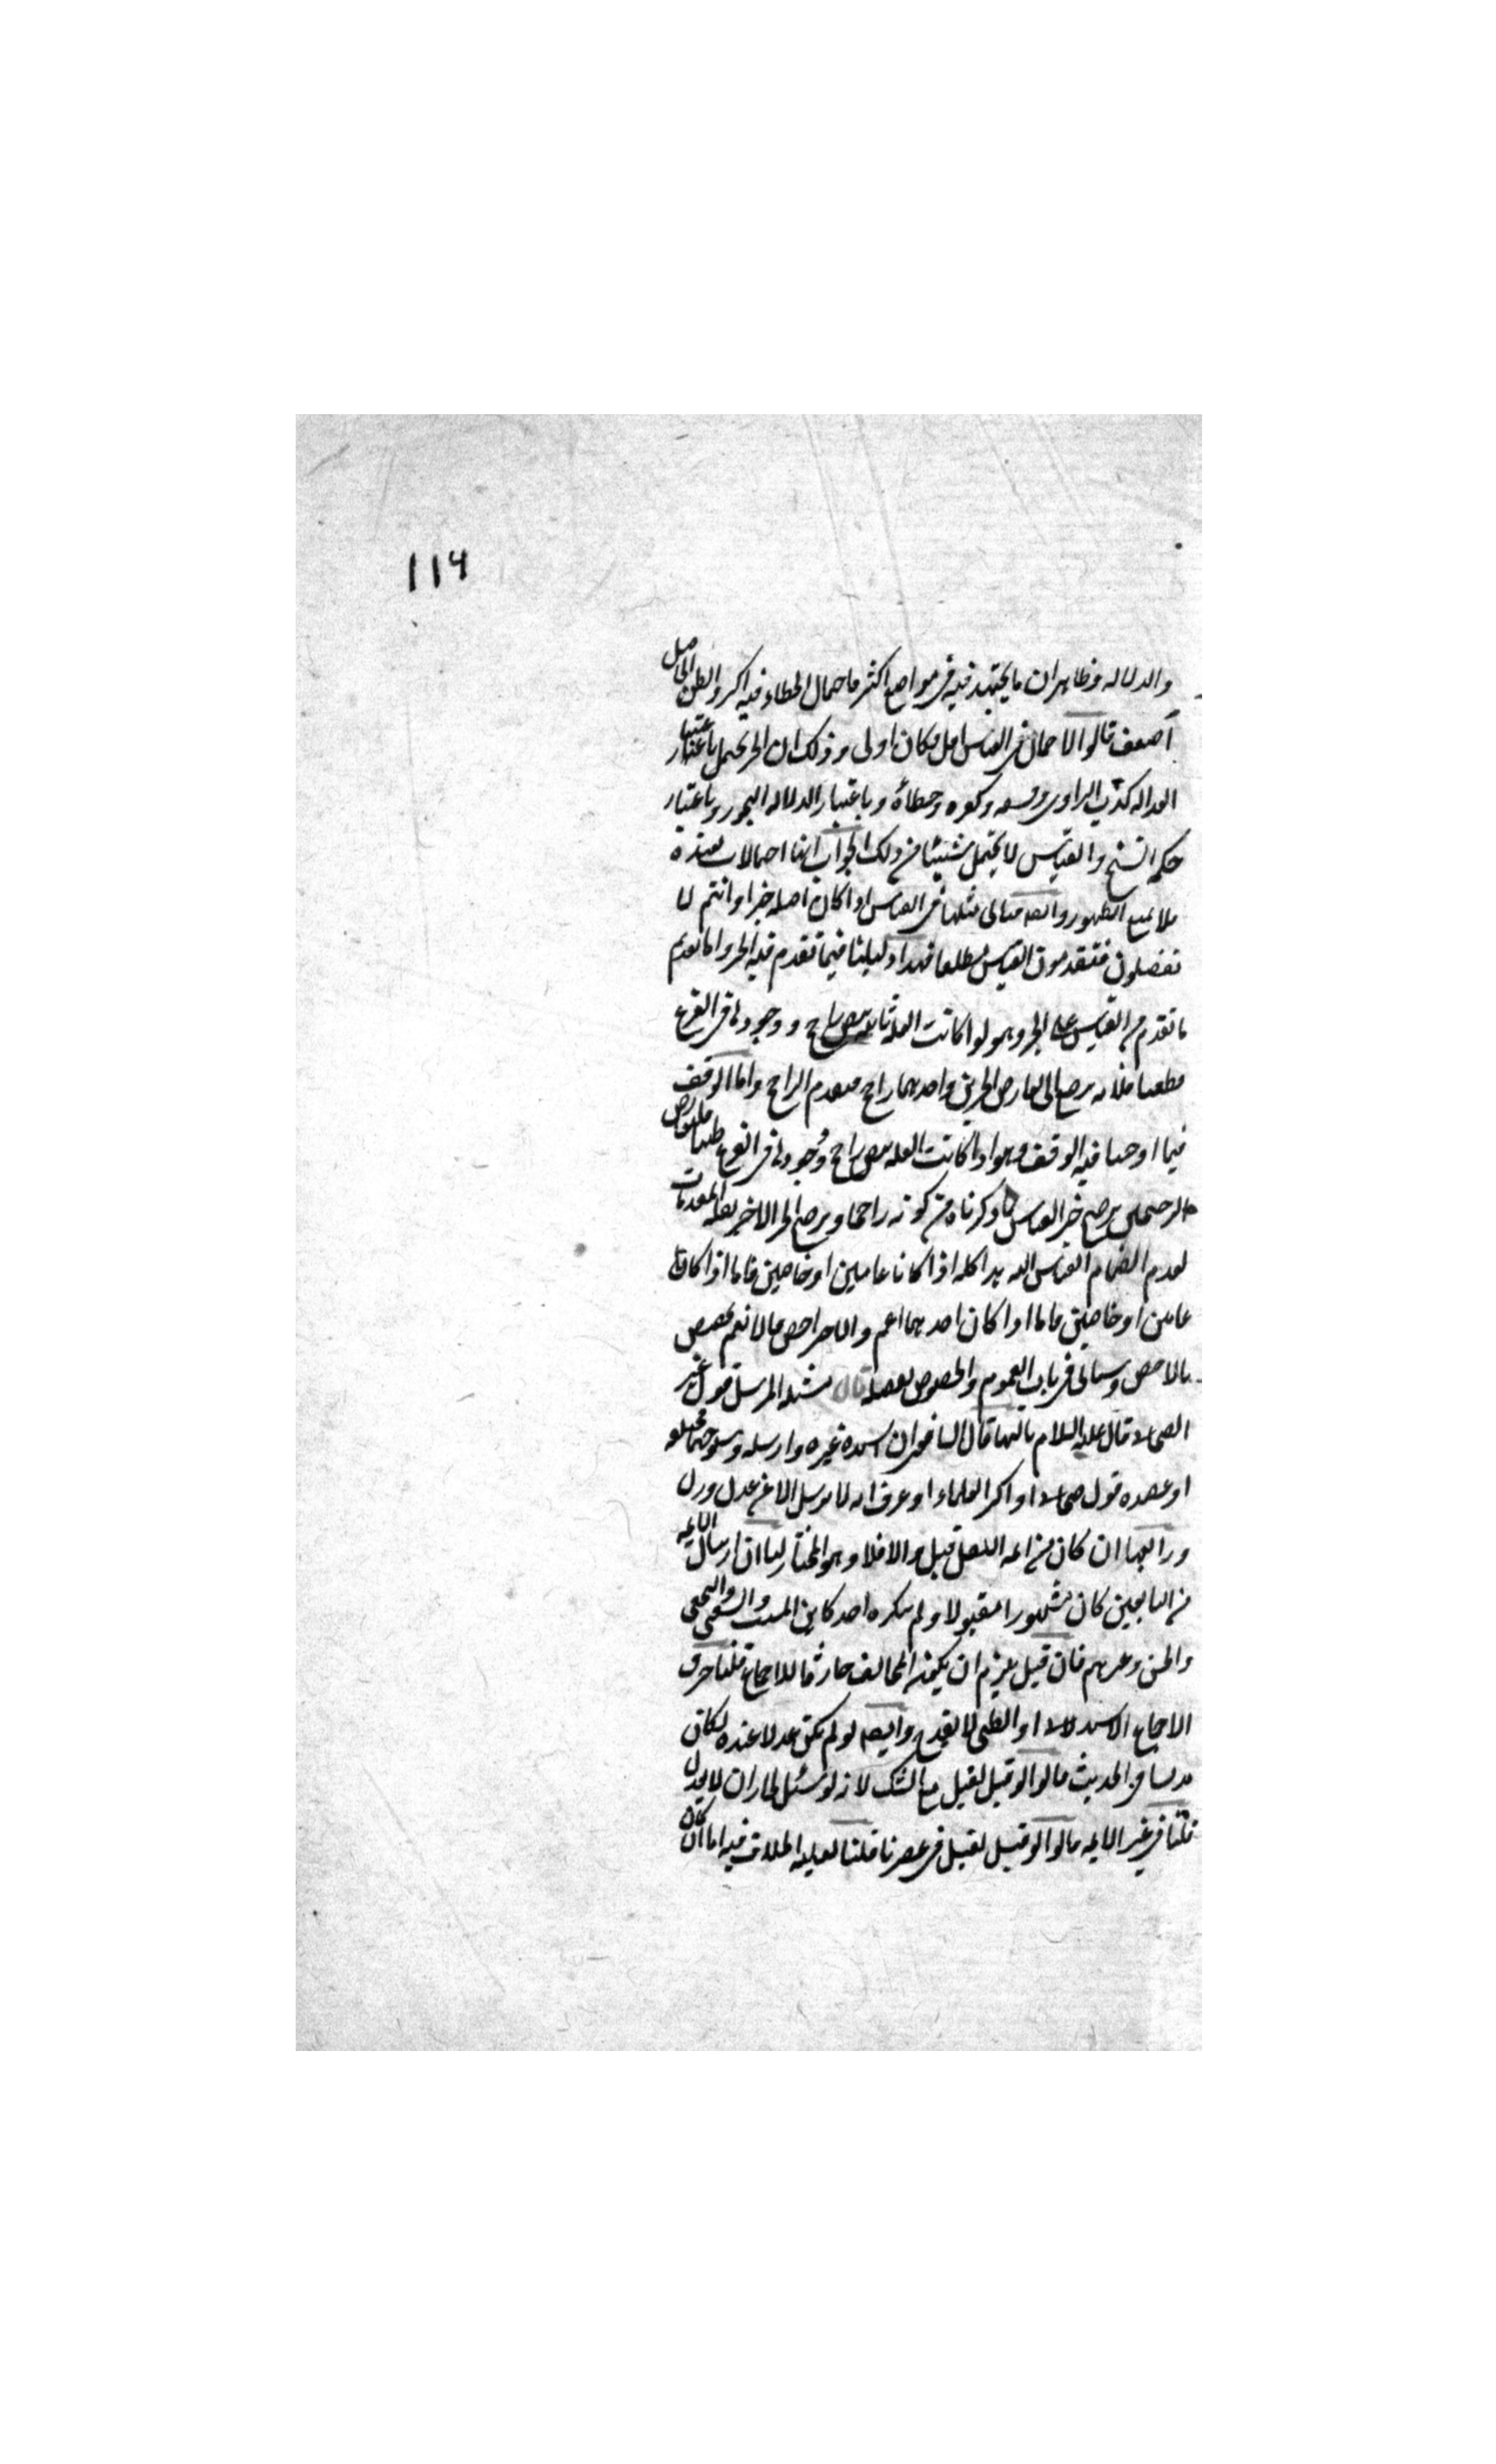 ١١٦
والدلاله وظاهر ان ما يجتهد فيه في مواضع اكثر فاحتمال الخطاء فيه اكثر والظن الحاصل
اضعف قالوا الاحتمال في القياس اقل فكان اولى وذلك ان الخبر يحتمل باعتبار
العداله كذب الراوى وفسقه وكفره وخطأه وباعتبار الدلاله التجوز وباعتبار
حكمه النسخ والقياس لا يحتمل شيئا من ذلك الجواب انها احتمالات بعيده
فلا تمنع الظهور وايضا فياتى مثلها في القياس اذا كان اصله خبرا وانتم لا
تفضلون فتقدمون القياس مطلقا فهذا دليلنا فيما تقدم فيه الخبر واما تقديم
ما تقدم من القياس على الخبر وهو لو كانت العله ثابته بنص راجح ووجودها في الفرع
قطعيا فلانه يرجع الى تعارض الخبرين واحدهما راجح فيقدم الراجح واما الوقف
فيما اوجبنا فيه الوقف وهو اذا كانت العله بنص راجح ووجودها في الفرع ظنيا فلتعارض
الترجيحين يرجح خبر القياس كما ذكرناه من كونه راجحا ويرجح الخبر الاخر بقله المقدمات
لعدم انضمام القياس اليه هذا كله اذا كانا عامين او خاصين فاما اذا كانا
عامين او خاصين فاما اذا كان احدهما اعم والاخر اخص فالاعم يخصص
بالاخص وسياتى في باب العموم والخصوص تفصيله قال مسئله المرسل قول غير
الصحابى قال عليه السلام ثالثها قال الشافعى ان اسنده غيره وارسله وشيوخهما مختلفه
او عضده قول صحابى او اكثر العلماء او عرف انه لا يرسل الا عن عدل قبل
ورابعها ان كان من ائمه النقل قبل والا فلا وهو المختار لنا ان ارسال الائمه
من التابعين كان مشهورا مقبولا ولم ينكره احد كابن المسيب والشعبى والنخعى
والحسن وغيرهم فان قيل يلزم ان يكون المخالف خارقا للاجماع قلنا خرق
الاجماع الاستدلالى او الظنى لا يقدح وايضا لو لم يكن عدلا عنده لكان
مدلسا في الحديث قالوا لو قبل لقبل مع الشك لانه لو سئل لجاز ان لا يعدل
قلنا في غير الائمه قالوا لو قبل لقبل في عصرنا قلنا لغلبه الخلاف فيه اما ان كان